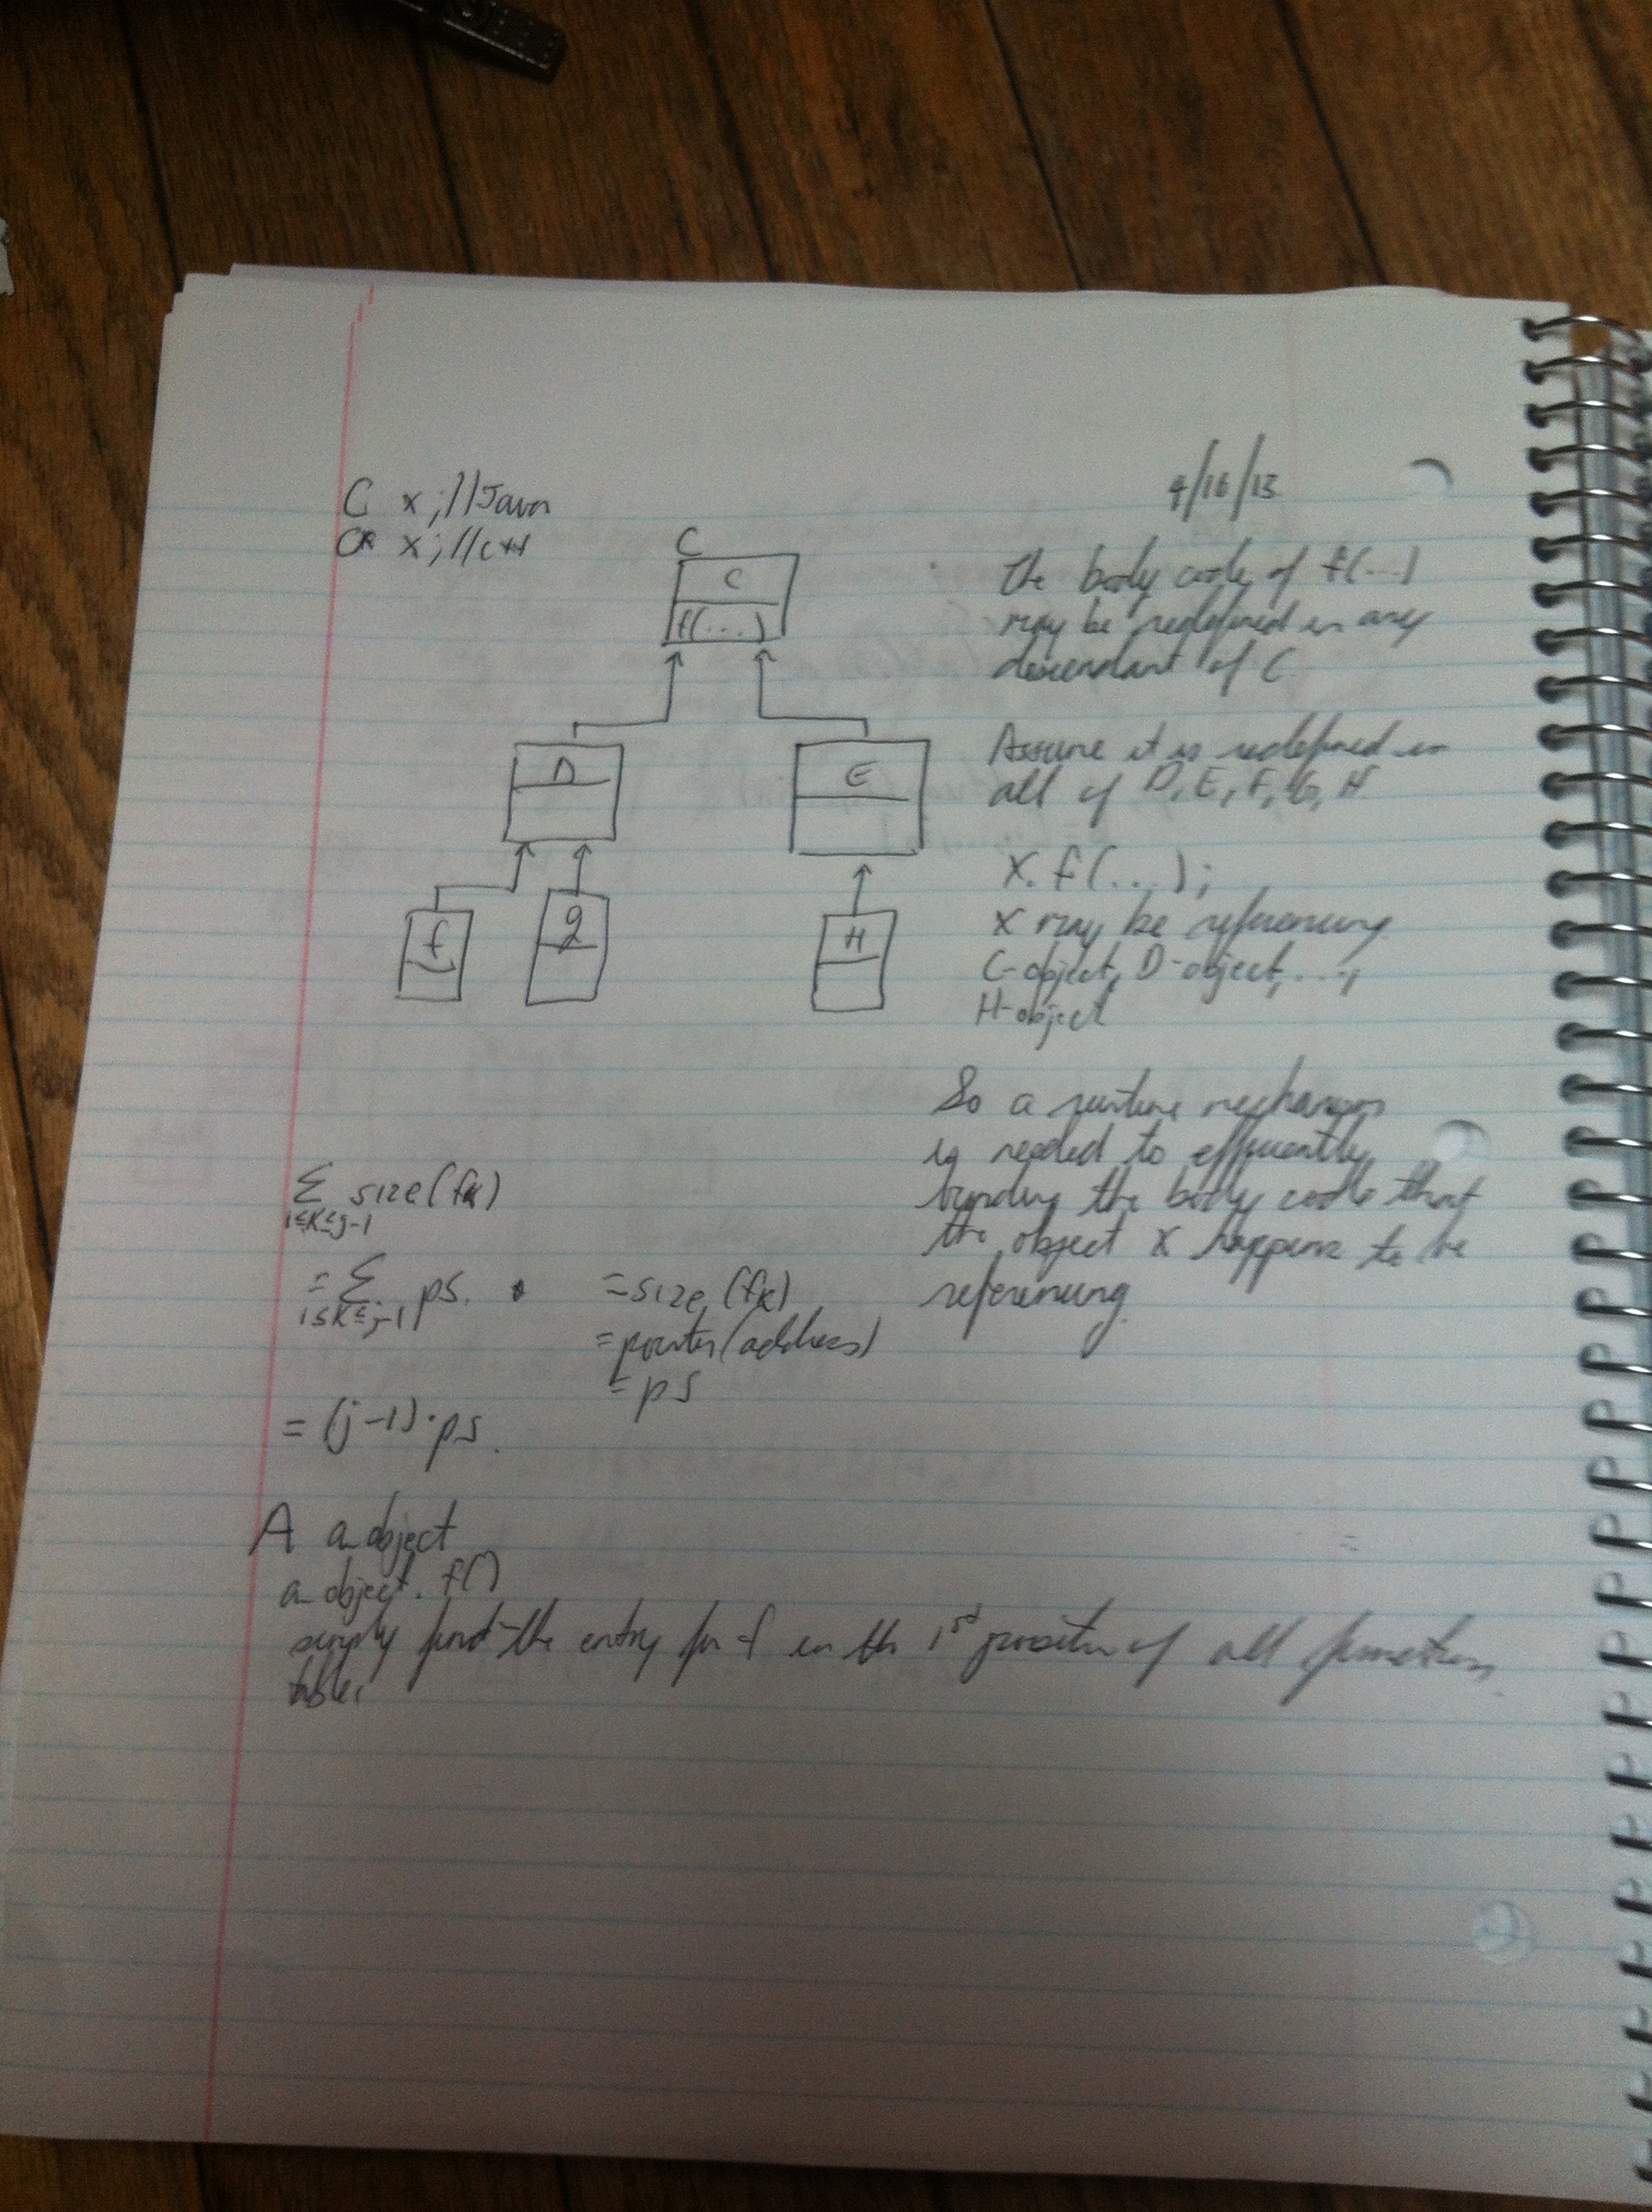 4/16/13
C x; //Java
C* x; //C++
C
C
f(...)
D
E
f
g
H
The body code of f(...)
may be redefined in any
descendant of C
Assume it is redefined in
all of D, E, F, G, H
x.f(...);
x may be referencing
C-object, D-object, ...,
H-object
So a runtime mechanism
is needed to efficiently
the body code that
the object x happens to be
referencing.
Σ size(fk)
1≤K≤j-1
= Σ ps.
1≤K≤j-1
= size(fk)
= pointer(address)
= ps
= (j-1)·ps.
A a_object
a_object.f()
simply find the entry for f in the 1st position of all function
tables